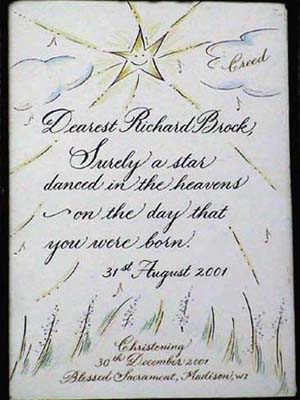 Creed
Dearest Richard Brock,
Surely a star
danced in the heavens
on the day that
you were born.
31st August 2001
Christening
30th December 2001
Blessed Sacrament, Madison, WI